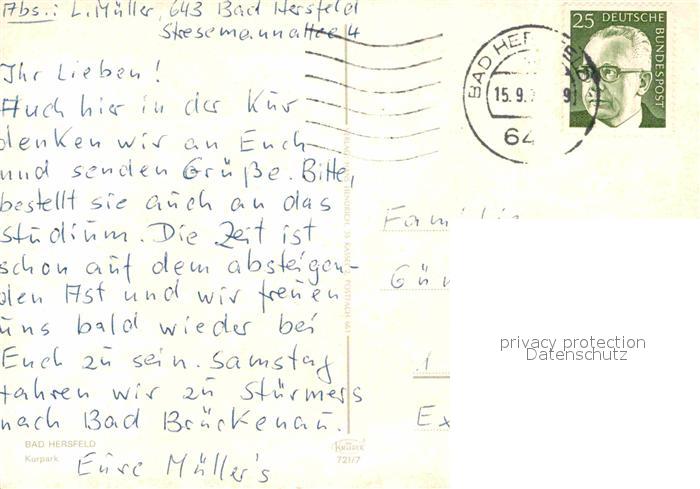 Abs.: L. Müller, 643 Bad Hersfeld
Stresemannallee 4
Ihr Lieben!
Auch hier in der Kur
denken wir an Euch
und senden Grüße. Bitte,
bestellt sie auch an das
Studium. Die Zeit ist
schon auf dem absteigen-
den Ast und wir freuen
uns bald wieder bei
Euch zu sein. Samstag
fahren wir zu Stürmers
nach Bad Brückenau.
Eure Müller's
BAD HERSFELD
Kurpark
KRÜGER
721/7
25 DEUTSCHE
BUNDESPOST
BAD HERSFELD
15.9.
64
Familie
privacy protection
Datenschutz